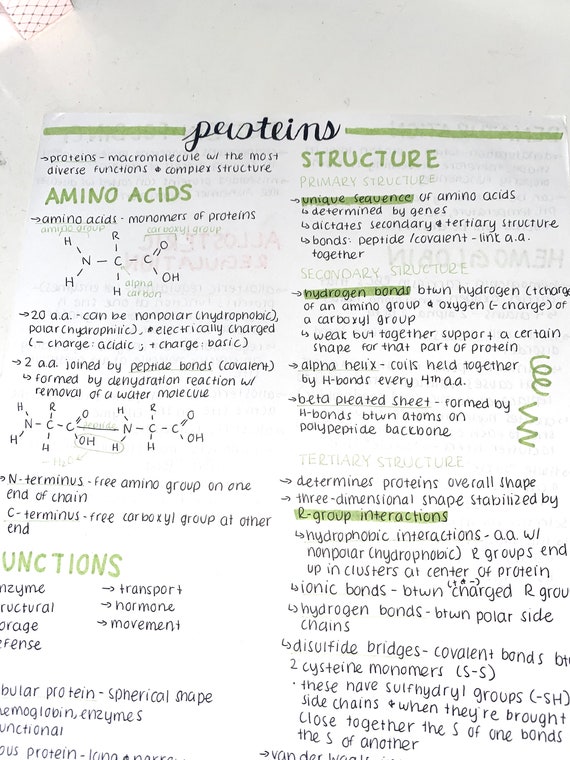 proteins
→proteins - macromolecule w/ the most
diverse functions & complex structure
AMINO ACIDS
→amino acids - monomers of proteins
amino group carboxyl group
H R O
N - C - C
H H OH
alpha
carbon
→20 a.a. - can be nonpolar (hydrophobic),
polar (hydrophilic), & electrically charged
(- charge: acidic; + charge: basic)
→2 a.a. joined by peptide bonds (covalent)
↳ formed by dehydration reaction w/
removal of a water molecule
H R O H R O
N - C - C peptide N - C - C
H H OH H H OH
H₂O
→N-terminus - free amino group on one
end of chain
C-terminus - free carboxyl group at other
end
UNCTIONS
nzyme → transport
ructural → hormone
orage → movement
efense
bular protein - spherical shape
hemoglobin, enzymes
unctional
ous protein - long &
STRUCTURE
PRIMARY STRUCTURE
→unique sequence of amino acids
↳ determined by genes
↳ dictates secondary & tertiary structure
↳ bonds: peptide/covalent - link a.a.
together
SECONDARY STRUCTURE
→hydrogen bonds btwn hydrogen (+charge
of an amino group & oxygen (- charge) of
a carboxyl group
↳ weak but together support a certain
shape for that part of protein
→alpha helix - coils held together
by H-bonds every 4th a.a.
→beta pleated sheet - formed by
H-bonds btwn atoms on
polypeptide backbone
TERTIARY STRUCTURE
→ determines proteins overall shape
→ three-dimensional shape stabilized by
R-group interactions
↳hydrophobic interactions - a.a. w/
nonpolar (hydrophobic) R groups end
up in clusters at center of protein
↳ionic bonds - btwn (+ & -) charged R grou
↳hydrogen bonds - btwn polar side
chains
↳disulfide bridges - covalent bonds bt
2 cysteine monomers (S-S)
· these have sulfhydryl groups (-SH)
side chains & when they're brought
close together the S of one bonds
the S of another
→van der Waals